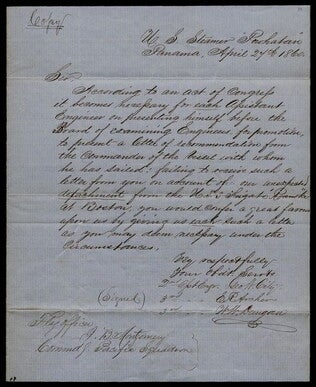 (Copy)
U. S. Steamer Powhatan
Panama, April 27th 186
Sir
According to an act of Congress
it becomes necessary for each Assistant
Engineer on presenting himself before the
Board of examining Engineers for promotion,
to present a letter of recommendation from
the Commander of the Vessel with whom
he has sailed: failing to receive such a
letter from you on account of our unexpected
detachment from the
at Boston, you would confer a great favor
upon us by giving us each such a letter
as you may deem necessary under the
Circumstances.
Very respectfully
Your Obdt Servts
2nd Asst Engr. Geo. W. City
(Signed) 3rd " " E. R. Archer
3rd " "
Flag officer
J. B. Montgomery
Commdg Pacific Squadron